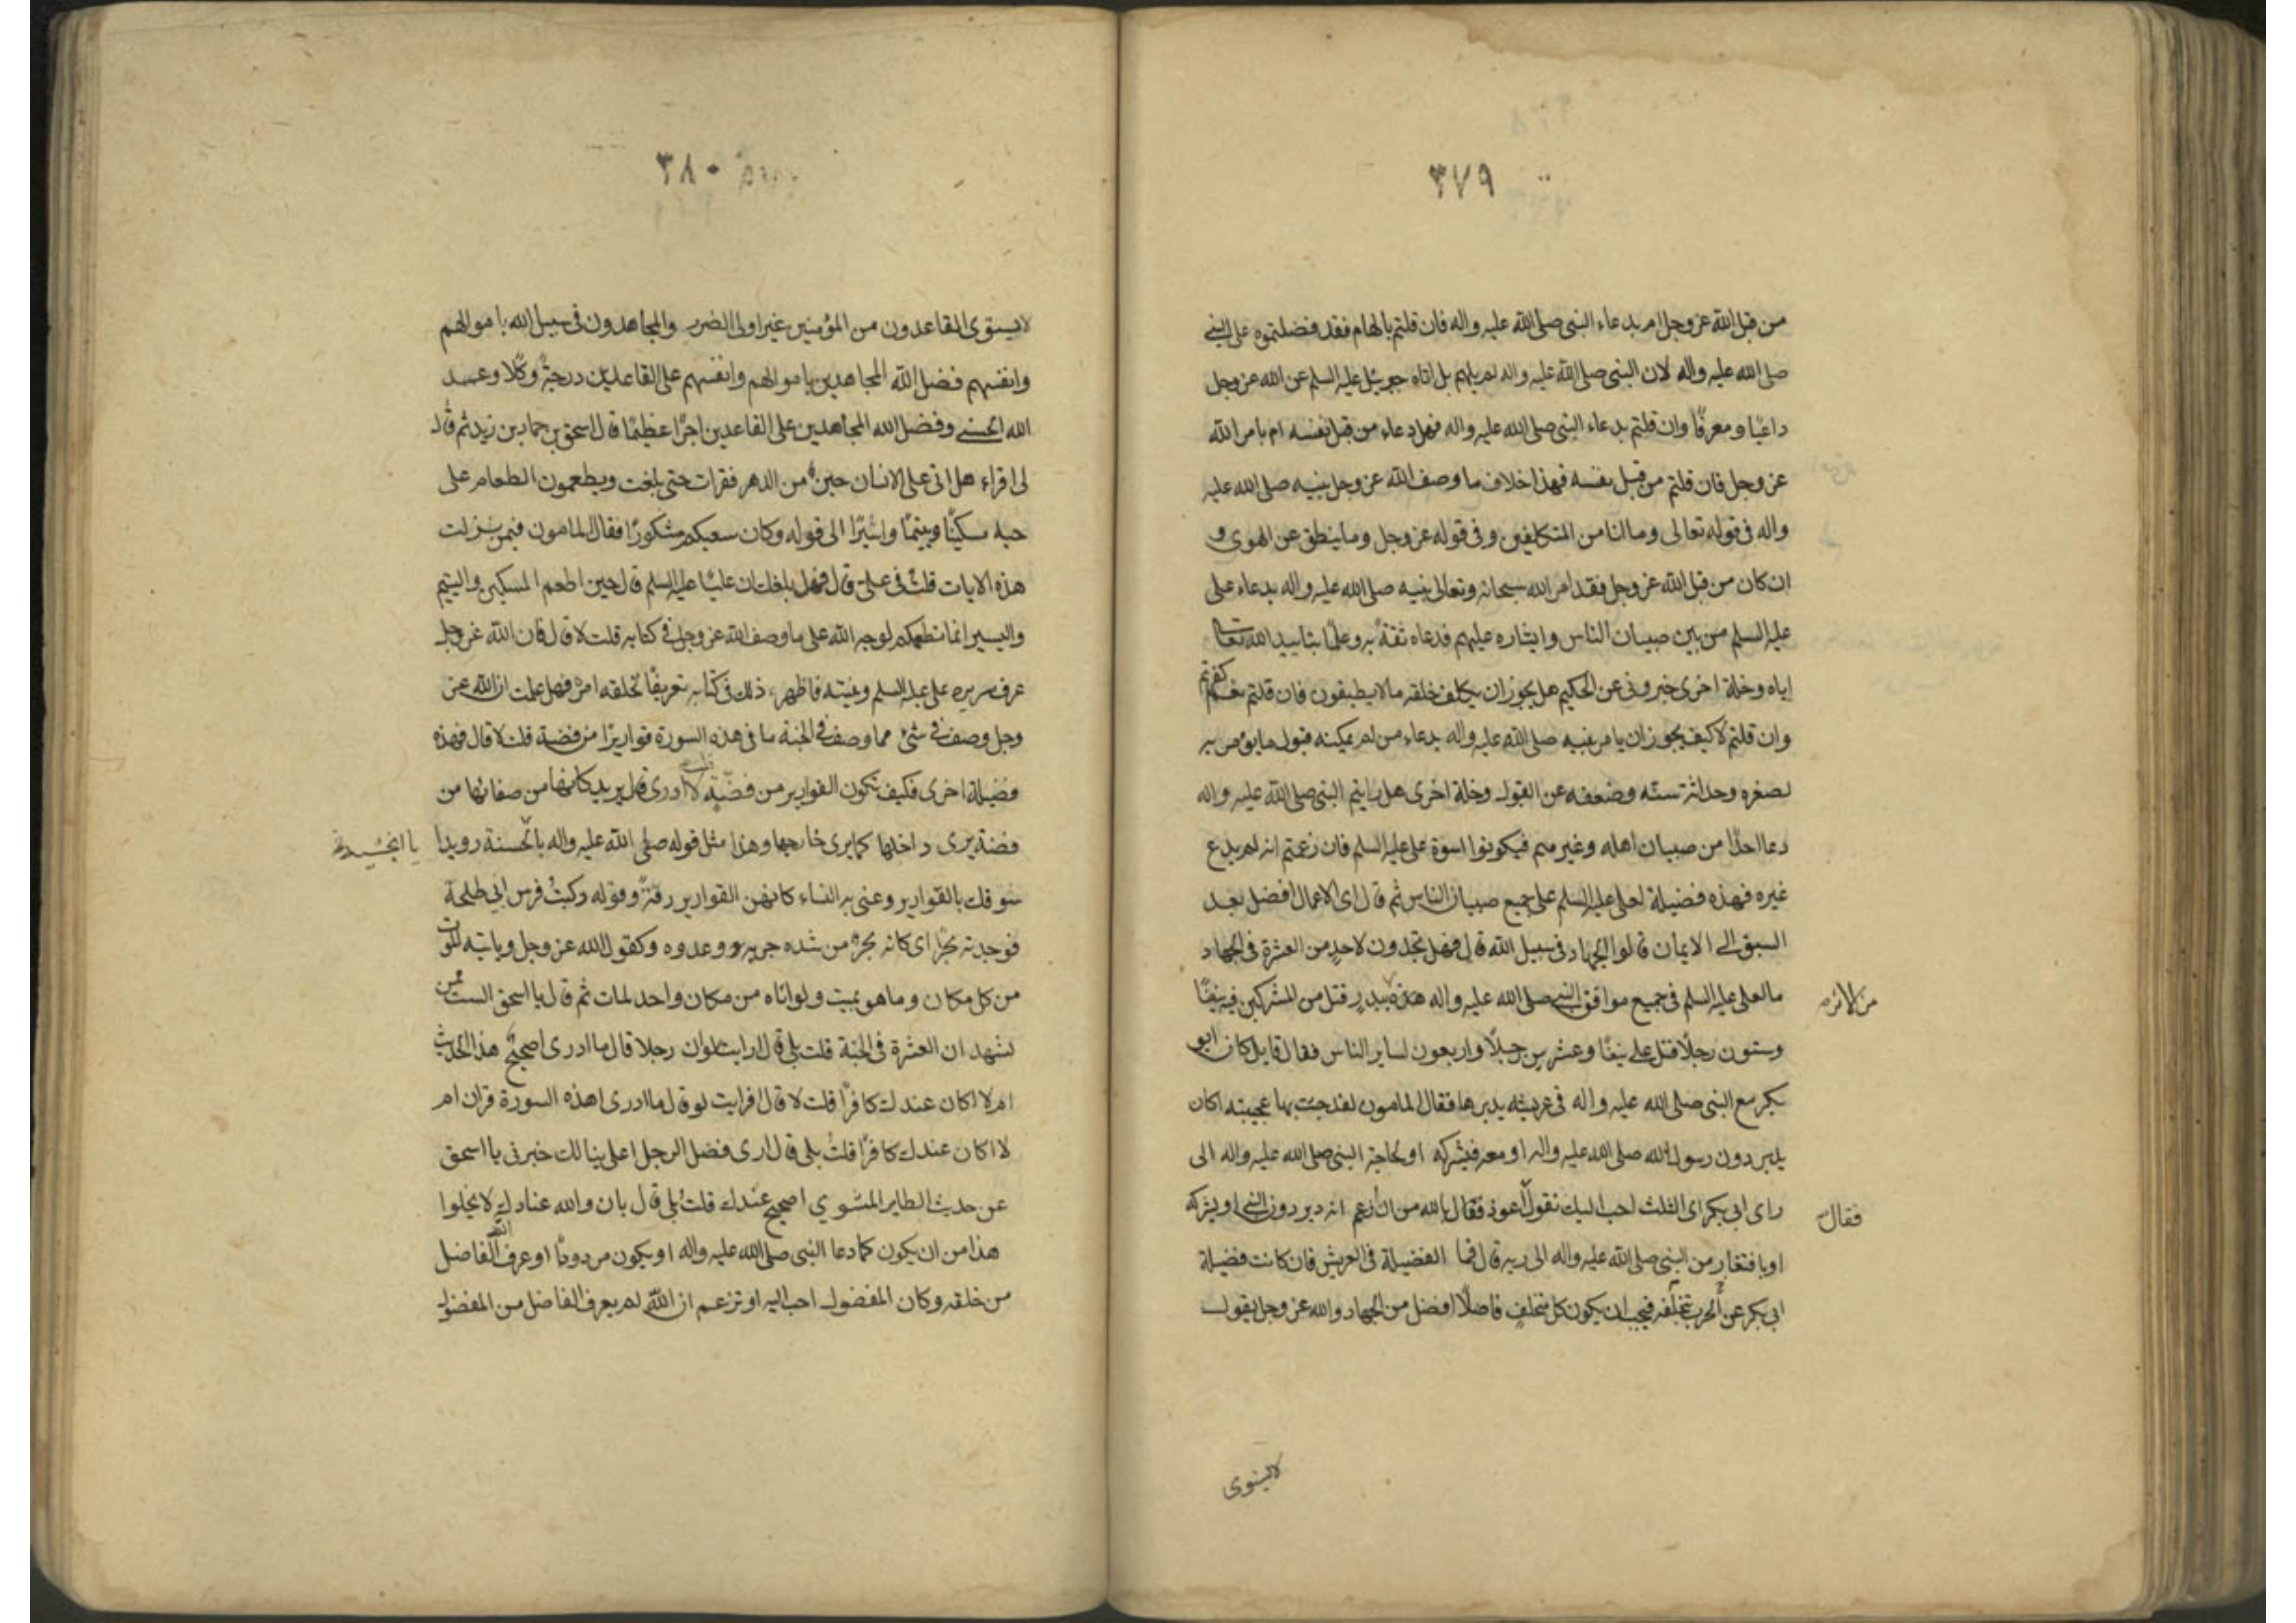 ٣٧٩
من قبل الله عز وجل ام بدعاء النبى صلى الله عليه واله فان قلتم بالهام فقد فضلتموه على النبى
صلى الله عليه واله لان النبى صلى الله عليه واله لم يلهم بل اتاه جبرئيل عليه السلم عن الله عز وجل
داعيًا ومعرفًا وان قلتم بدعاء النبى صلى الله عليه واله فهل دعاء من قبل نفسه ام بامر الله
عز وجل فان قلتم من قبل نفسه فهذا خلاف ما وصف الله عز وجل نبيه صلى الله عليه
واله فى قوله تعالى وما انا من المتكلفين وفى قوله عز وجل وما ينطق عن الهوى و
ان كان من قبل الله عز وجل فقد امر الله سبحانه وتعالى نبيه صلى الله عليه واله بدعاء على
عليه السلم من بين صبيان الناس وايثاره عليهم فدعاه ثقة به وعلمًا بتاييد الله تعالى
اياه وخلة اخرى خبرونى عن الحكيم هل يجوز ان يكلف خلقه ما لا يطيقون فان قلتم نعم كفرتم
وان قلتم لا كيف يجوز ان يامر نبيه صلى الله عليه واله بدعاء من لم يمكنه قبول ما يؤمر به
لصغره وحداثة سنه وضعفه عن القبول وخلة اخرى هل رايتم النبى صلى الله عليه واله
دعا احدًا من صبيان اهله وغيرهم فيكونوا اسوة على عليه السلم فان زعمتم انه لم يدع
غيره فهذه فضيلة لعلى عليه السلم على جميع صبيان الناس ثم قال اى الاعمال افضل بعد
السبق الى الايمان قالوا الجهاد فى سبيل الله قال فهل تجدون لاحد من العشرة فى الجهاد
ما لعلى عليه السلم فى جميع مواقف النبى صلى الله عليه واله هذه ببدر قتل من المشركين فيه نيفًا
من الاثر
وستون رجلًا قتل على نيفًا وعشرين رجلًا واربعون لساير الناس فقال قايل كان ابو
بكر مع النبى صلى الله عليه واله فى عريشه يدبرها فقال المامون لقد جئت بها عجيبة اكان
يدبر دون رسول الله صلى الله عليه واله او معه فيشركه او لحاجة النبى صلى الله عليه واله الى
راى ابى بكر اى الثلث احب اليك تقول اعوذ فقال بالله من ان ازعم انه دبر دون النبى او يشركه
فقال
او بافتقار من النبى صلى الله عليه واله الى ربه قال فما الفضيلة فى العريش فان كانت فضيلة
ابى بكر عن الحرب بتخلفه فيجب ان يكون كل متخلف فاضلًا افضل من الجهاد والله عز وجل يقول
لا يستوى
٣٨٠
لا يستوى القاعدون من المؤمنين غير اولى الضرر والمجاهدون فى سبيل الله باموالهم
وانفسهم فضل الله المجاهدين باموالهم وانفسهم على القاعدين درجةً وكلا وعد
الله الحسنى وفضل الله المجاهدين على القاعدين اجرًا عظيمًا قال اسحق بن حماد بن زيد ثم قال
لى اقراء هل اتى على الانسان حين من الدهر فقرات حتى بلغت ويطعمون الطعام على
حبه مسكينًا ويتيمًا واسيرًا الى قوله وكان سعيكم مشكورًا فقال المامون فيمن نزلت
هذه الايات قلت فى على قال فهل بلغك ان عليًا عليه السلم قال حين اطعم المسكين واليتيم
والاسير انما نطعمكم لوجه الله على ما وصف الله عز وجل فى كتابه قلت لا قال فان الله عز وجل
عرف سريره على عليه السلم ونيته فاظهر ذلك فى كتابه تعريفًا لخلقه امره فهل علمت ان الله عز
وجل وصف فى شئ مما وصف فى الجنة ما فى هذه السورة قواريرًا من فضة قلت لا قال فهذه
فضيلة اخرى فكيف تكون القوارير من فضة قلت لا ادرى قال يريد كانها من صفائها من
فضة يرى داخلها كما يرى خارجها وهذا مثل قوله صلى الله عليه واله يا الحسنة رويدا
يا انجشه
سوقك بالقوارير وعنى به النساء كانهن القوارير رقةً وقوله ركبتُ فرس ابى طلحة
فوجدته بحرًا اى كانه بحرٌ من شده جريه وعدوه وكقول الله عز وجل وياتيه الموت
من كل مكان وما هو بميت ولو اتاه من مكان واحد لمات ثم قال يا اسحق الست ممن
نشهد ان العشرة فى الجنة قلت بلى قال ارايت لو ان رجلا قال ما ادرى اصحيح هذا الحديث
ام لا اكان عندك كافرًا قلت لا قال افرايت لو قال ما ادرى اهذه السورة قران ام
لا اكان عندك كافرًا قلت بلى قال ارى فضل الرجل خبرنى يا اسحق
عن حديث الطاير المشوي اصحيح عندك قلت بلى قال بان والله عنادك لا يخلوا
هذا من ان يكون كما دعا النبى صلى الله عليه واله او يكون مردودًا او عرف الله الفاضل
من خلقه وكان المفضول احب اليه او تزعم ان الله لم يعرف الفاضل من المفضول